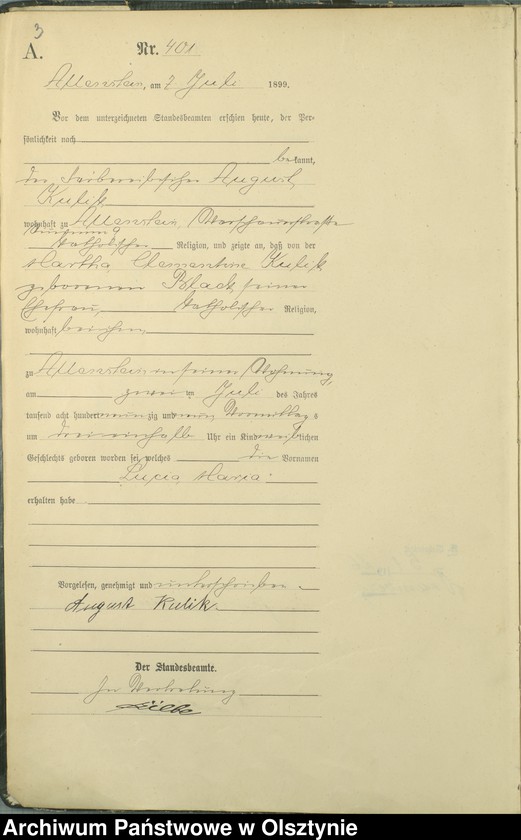 3
A.
Nr. 401
Allenstein, am 7 Juli 1899.
Vor dem unterzeichneten Standesbeamten erschien heute, der Per-
sönlichkeit nach
bekannt,
der August
Kulik
wohnhaft zu Allenstein, Warschauerstraße
katholischer Religion, und zeigte an, daß von der
Martha Clementine Kulik
geborenen Black, seiner
Ehefrau, katholischer Religion,
wohnhaft bei ihm,
zu Allenstein in seiner Wohnung,
am zwei ten Juli des Jahres
tausend acht hundert neun zig und neun Vormittag s
um dreieinhalb Uhr ein Kind weiblichen
Geschlechts geboren worden sei, welches die Vornamen
Lucia Maria
erhalten habe
Vorgelesen, genehmigt und unterschrieben
August Kulik
Der Standesbeamte.
In Vertretung
Archiwum Państwowe w Olsztynie